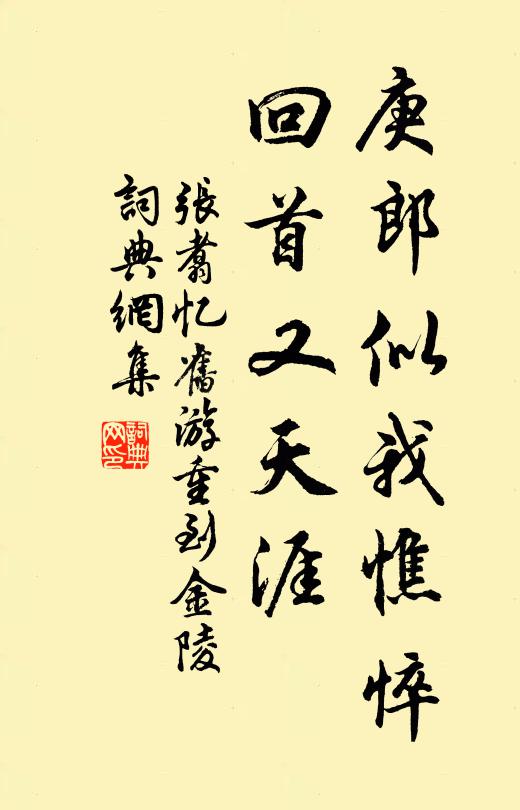 庾郎似我憔悴
回首又天涯
張翥忆舊游重到金陵
詞典網集
詞典网印